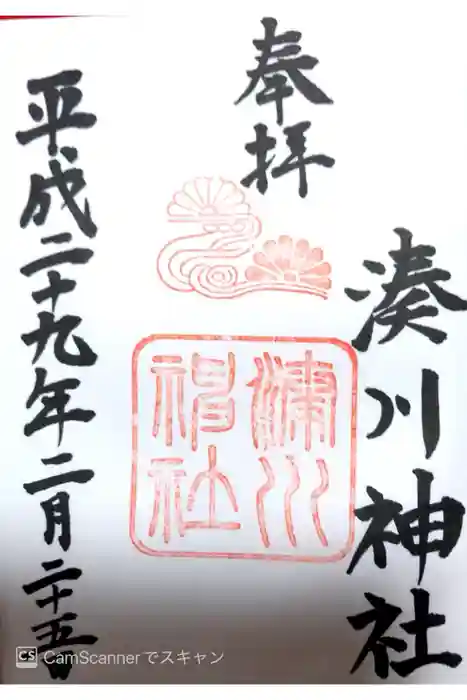 奉拝
湊川神社
湊川
神社
平成二十九年二月二十五日
CS CamScannerでスキャン